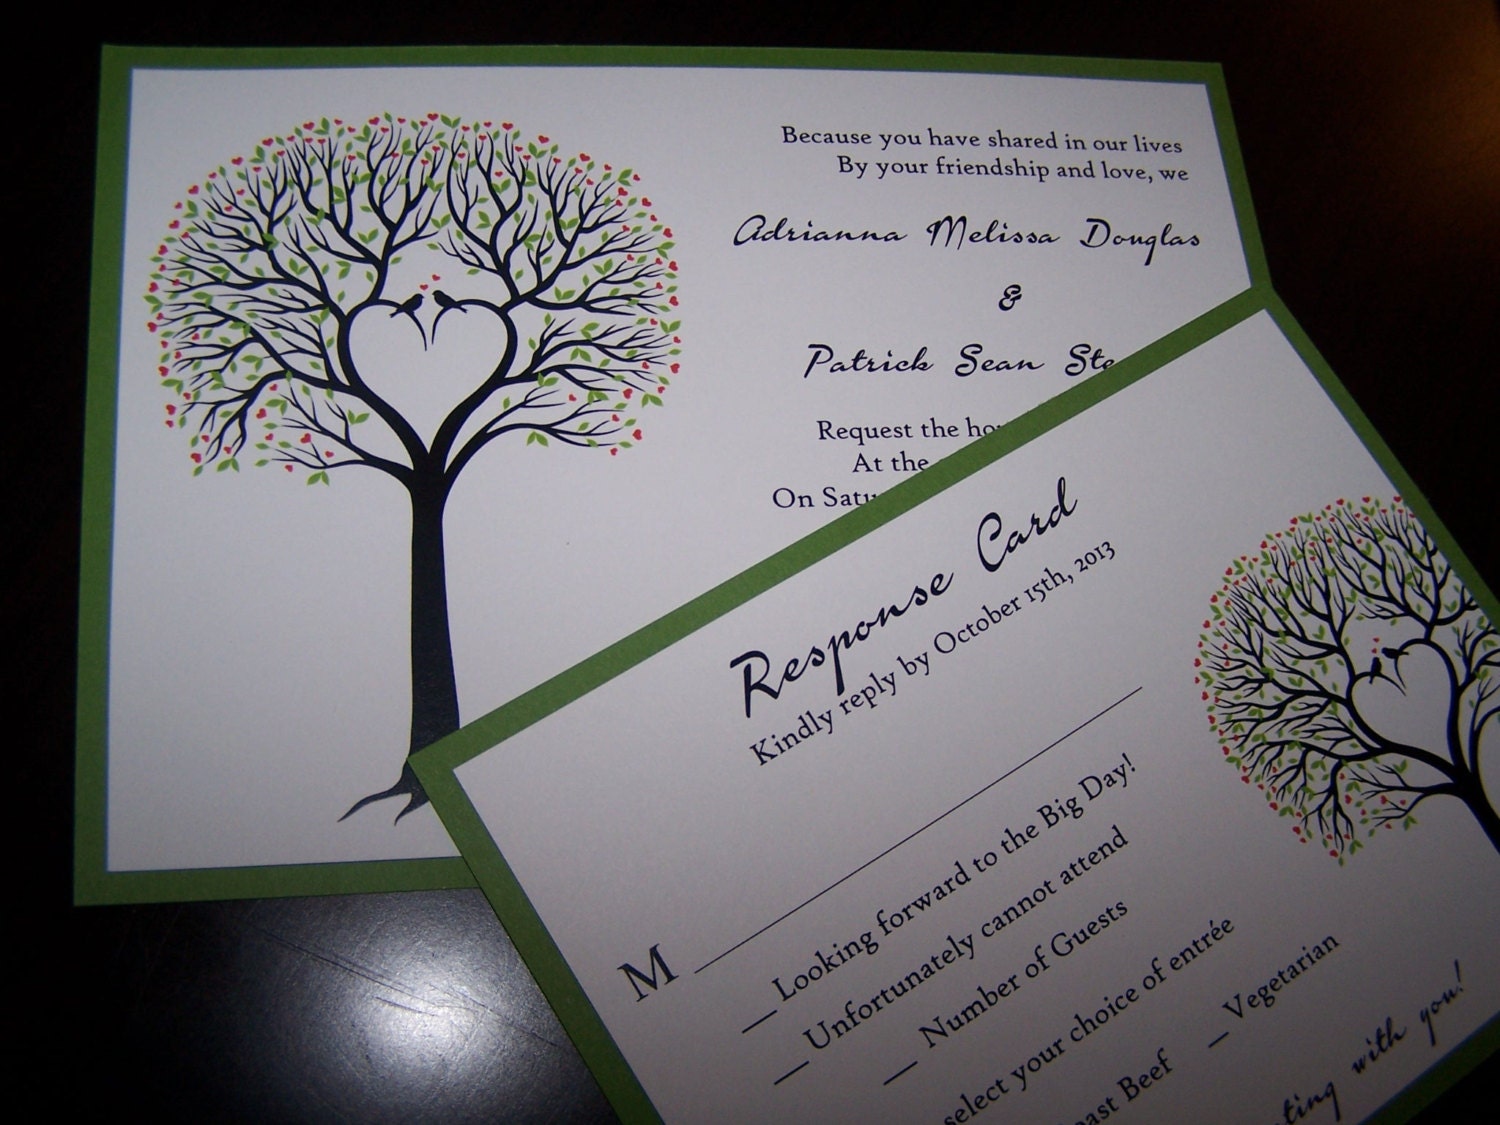 Because you have shared in our lives
By your friendship and love, we
Adrianna Melissa Douglas
&
Patrick Sean Ste
Request the
At the
On
Response Card
Kindly reply by October 15th, 2013
M
Looking forward to the Big Day!
Unfortunately cannot attend
Number of Guests
select your choice of entrée
Beef
Vegetarian
with you!